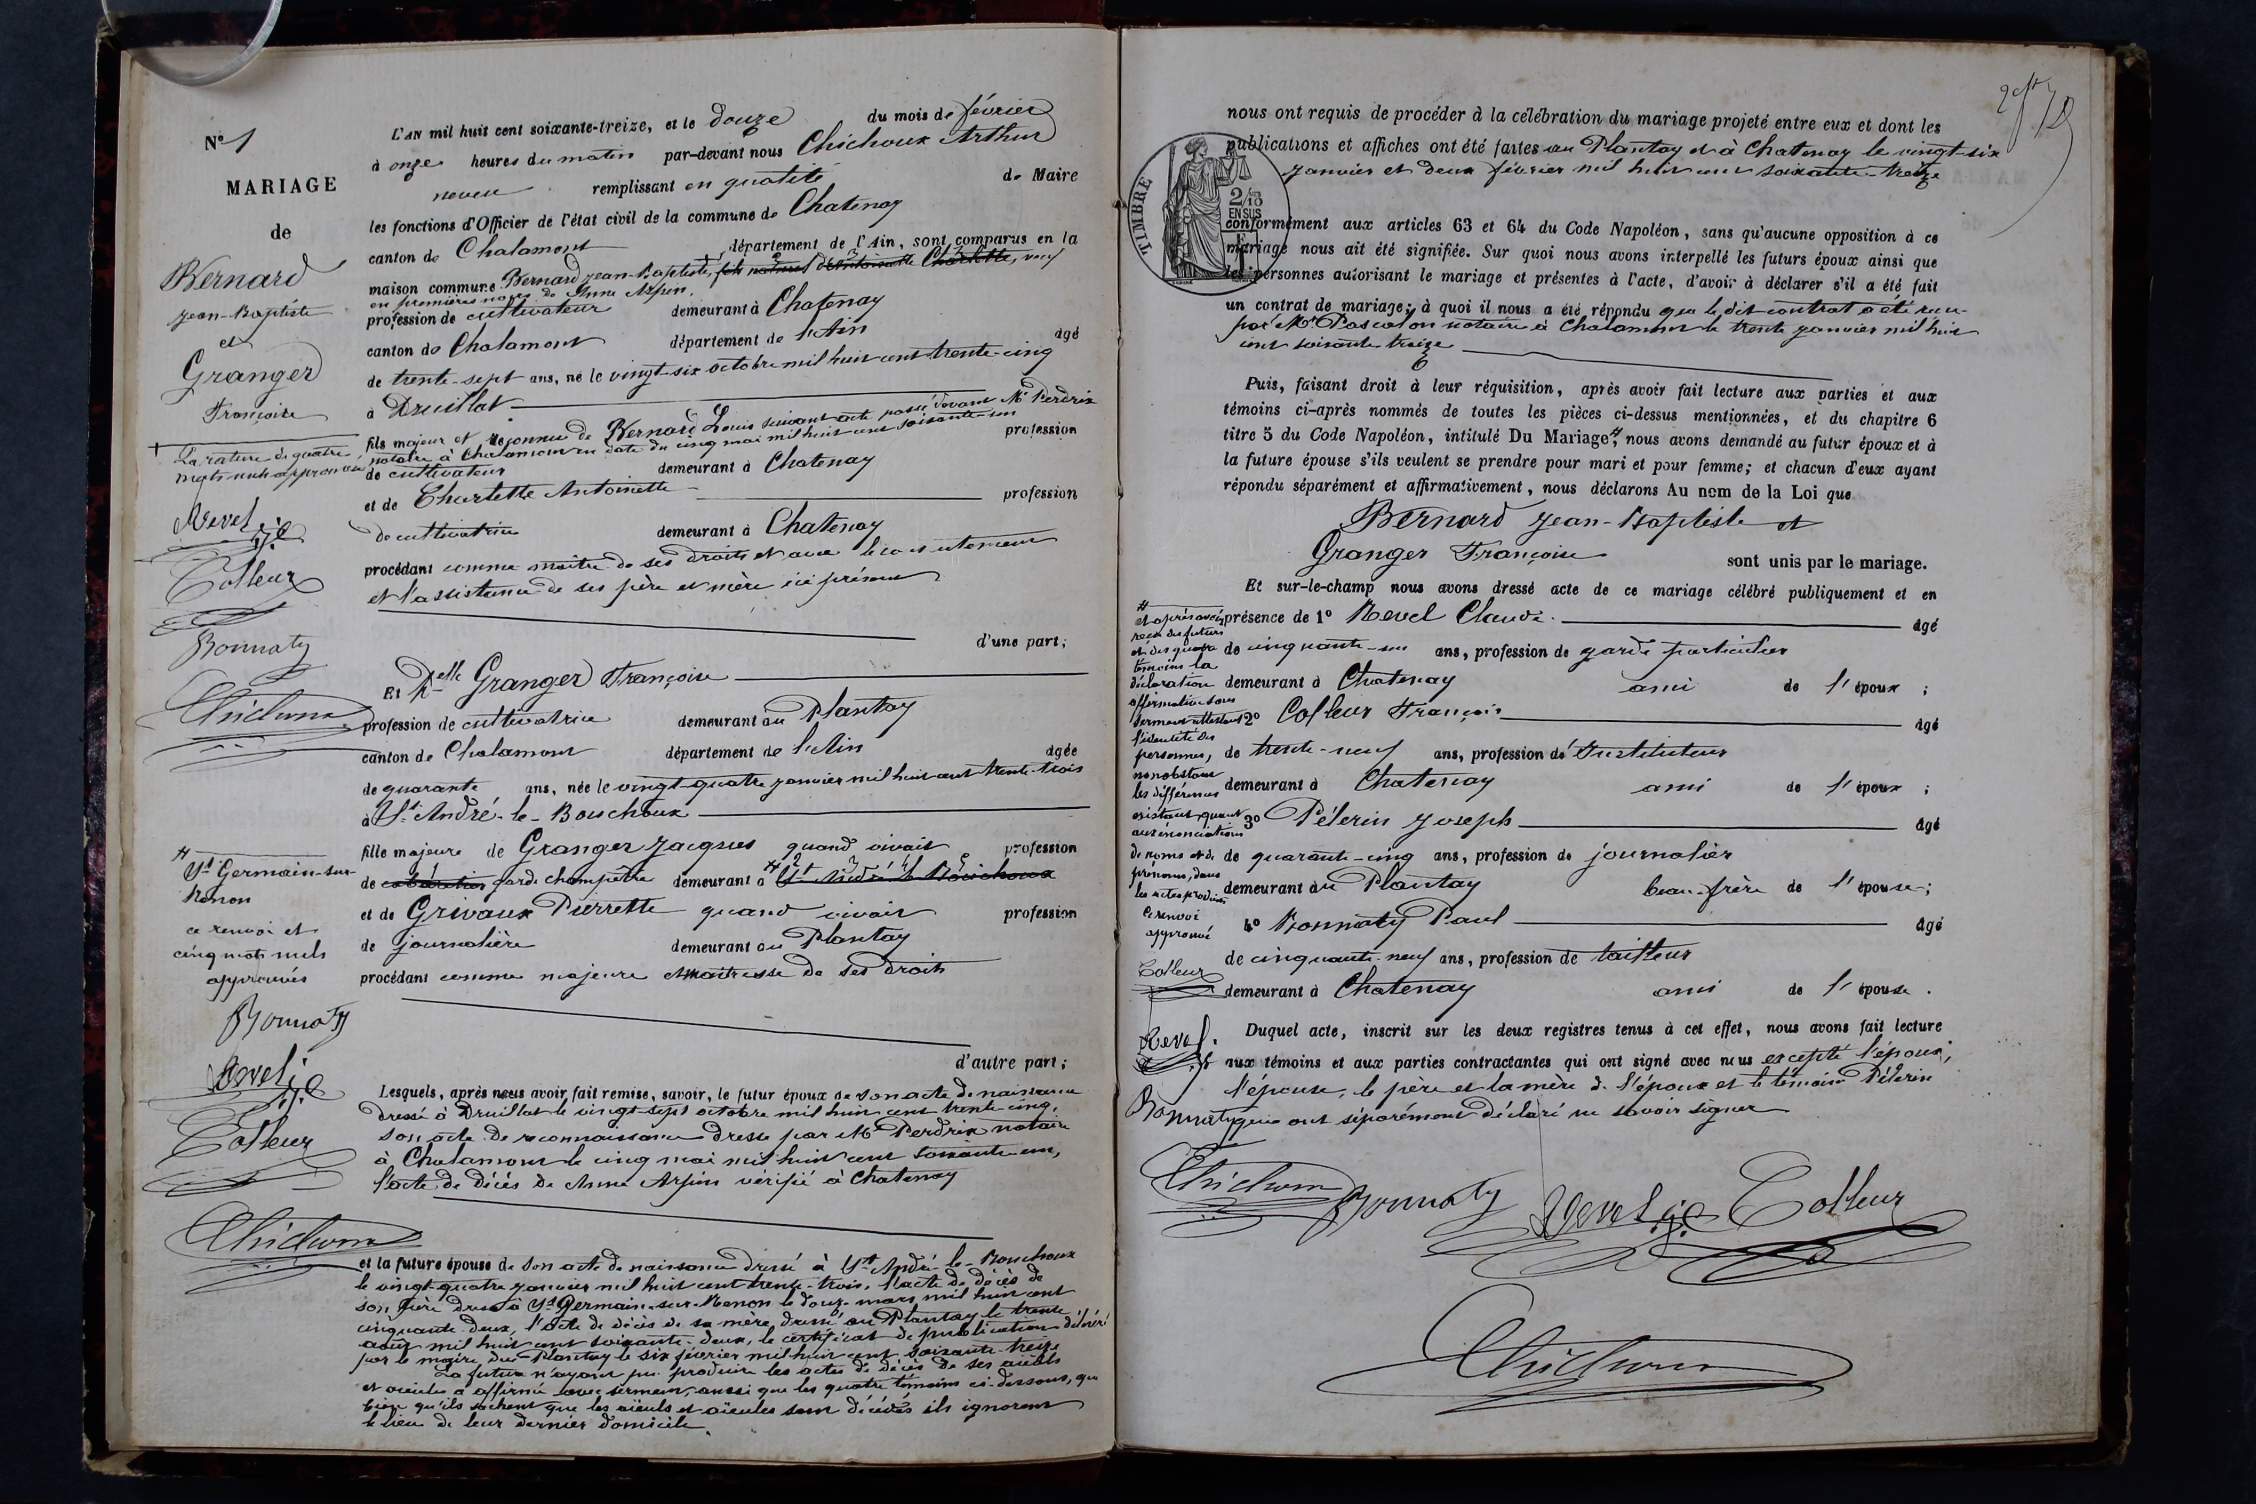 N° 1
MARIAGE
de
Bernard
Jean-Baptiste
et
Granger
Françoise
La rature de quatre
mots nuls approuvée
Revel
Colleur
Bonnaty
St Germain-sur-
Renon
ce renvoi et
cinq mots nuls
approuvés
Bonnaty
Revel
Colleur
L'AN mil huit cent soixante-treize, et le douze du mois de février
à onze heures du matin par-devant nous Chichoux Arthur
neveu remplissant en qualité de Maire
les fonctions d'Officier de l'état civil de la commune de Chatenay
canton de Chalamont département de l'Ain, sont comparus en la
maison commune Bernard Jean-Baptiste, fils naturel de Antoinette Charlette, veuf
en premières noces de Anne Arpin,
profession de cultivateur demeurant à Chatenay
canton de Chalamont département de l'Ain âgé
de trente-sept ans, né le vingt-six octobre mil huit cent trente-cinq
à Druillat
fils majeur et reconnu de Bernard Louis suivant acte passé devant Me Perdrix
notaire à Chalamont en date du cinq mai mil huit cent soixante-un profession
de cultivateur demeurant à Chatenay
et de Charlette Antoinette profession
de cultivatrice demeurant à Chatenay
procédant comme maître de ses droits et avec le consentement
et l'assistance de ses père et mère ici présents
d'une part;
Et Delle Granger Françoise
profession de cultivatrice demeurant au Plantay
canton de Chalamont département de l'Ain âgée
de quarante ans, née le vingt-quatre janvier mil huit cent trente-trois
à St André-le-Bouchoux
fille majeure de Granger Jacques quand vivait profession
de garde champêtre demeurant à St André le Bouchoux
et de Grivaux Pierrette quand vivait profession
de journalière demeurant au Plantay
procédant comme majeure et maîtresse de ses droits
d'autre part;
Lesquels, après nous avoir fait remise, savoir, le futur époux de son acte de naissance
dressé à Druillat le vingt-sept octobre mil huit cent trente-cinq,
son acte de reconnaissance dressé par Me Perdrix notaire
à Chalamont le cinq mai mil huit cent soixante-un,
l'acte de décès de Anne Arpin vérifié à Chatenay
et la future épouse de son acte de naissance dressé à St André-le-Bouchoux
le vingt-quatre janvier mil huit cent trente-trois, l'acte de décès de
son père dressé à St Germain-sur-Renon le douze mars mil huit cent
cinquante-deux, l'acte de décès de sa mère dressé au Plantay le trente
août mil huit cent soixante-deux, le certificat de publication délivré
par le maire du Plantay le six février mil huit cent soixante-treize
La future n'ayant pu produire les actes de décès de ses aïeuls
et aïeules a affirmé avec serment, aussi que les quatre témoins ci-dessous, que
bien qu'ils sachent que les aïeuls et aïeules sont décédés ils ignorent
le lieu de leur dernier domicile.
nous ont requis de procéder à la célébration du mariage projeté entre eux et dont les
publications et affiches ont été faites au Plantay et à Chatenay le vingt-six
janvier et deux février mil huit cent soixante-treize
TIMBRE
2/10
EN SUS
conformément aux articles 63 et 64 du Code Napoléon, sans qu'aucune opposition à ce
mariage nous ait été signifiée. Sur quoi nous avons interpellé les futurs époux ainsi que
les personnes autorisant le mariage et présentes à l'acte, d'avoir à déclarer s'il a été fait
un contrat de mariage; à quoi il nous a été répondu que le dit contrat a été reçu
par Me Pascalon notaire à Chalamont le trente janvier mil huit
cent soixante treize
Puis, faisant droit à leur réquisition, après avoir fait lecture aux parties et aux
témoins ci-après nommés de toutes les pièces ci-dessus mentionnées, et du chapitre 6
titre 5 du Code Napoléon, intitulé Du Mariage, nous avons demandé au futur époux et à
la future épouse s'ils veulent se prendre pour mari et pour femme; et chacun d'eux ayant
répondu séparément et affirmativement, nous déclarons Au nom de la Loi que
Bernard Jean-Baptiste et
Granger Françoise sont unis par le mariage.
Et sur-le-champ nous avons dressé acte de ce mariage célébré publiquement et en
présence de 1° Revel Claude âgé
de cinquante-un ans, profession de garde particulier
demeurant à Chatenay ami de l'époux ;
2° Colleur François âgé
de trente-neuf ans, profession d'Instituteur
demeurant à Chatenay ami de l'époux ;
3° Pélerin Joseph âgé
de quarante-cinq ans, profession de journalier
demeurant au Plantay beau-frère de l'épouse ;
4° Bonnaty Paul âgé
de cinquante-neuf ans, profession de tailleur
demeurant à Chatenay ami de l'épouse .
et après avoir
reçu des futurs
et des quatre
témoins la
déclaration
affirmative sous
serment attestant
l'identité des
personnes,
nonobstant
les différences
existant quant
aux énonciations
de noms et de
prénoms, dans
les actes produits
ce renvoi
approuvé
Colleur
Revel
Bonnaty
Duquel acte, inscrit sur les deux registres tenus à cet effet, nous avons fait lecture
aux témoins et aux parties contractantes qui ont signé avec nous excepté l'époux,
l'épouse, le père et la mère de l'époux et le témoin Pélerin
qui ont séparément déclaré ne savoir signer
Bonnaty Revel Colleur